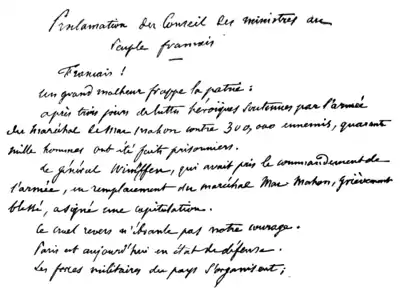 Proclamation du Conseil des ministres au
Peuple français
Français !
Un grand malheur frappe la patrie :
après trois jours de luttes héroïques soutenues par l'armée
du maréchal de Mac Mahon contre 300,000 ennemis, quarant
mille hommes ont été faits prisonniers.
Le général Wimffen, qui avait pris le commandement de
l'armée, en remplacement du maréchal Mac Mahon, grièvement
blessé, a signé une capitulation.
Ce cruel revers n'ébranle pas notre courage.
Paris est aujourd'hui en état de défense.
Les forces militaires du pays s'organisent ;